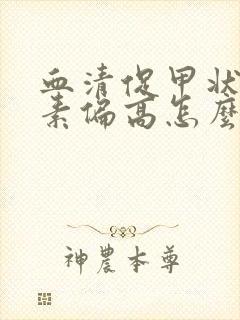 血清促甲状
素偏高怎麼
神農本尊